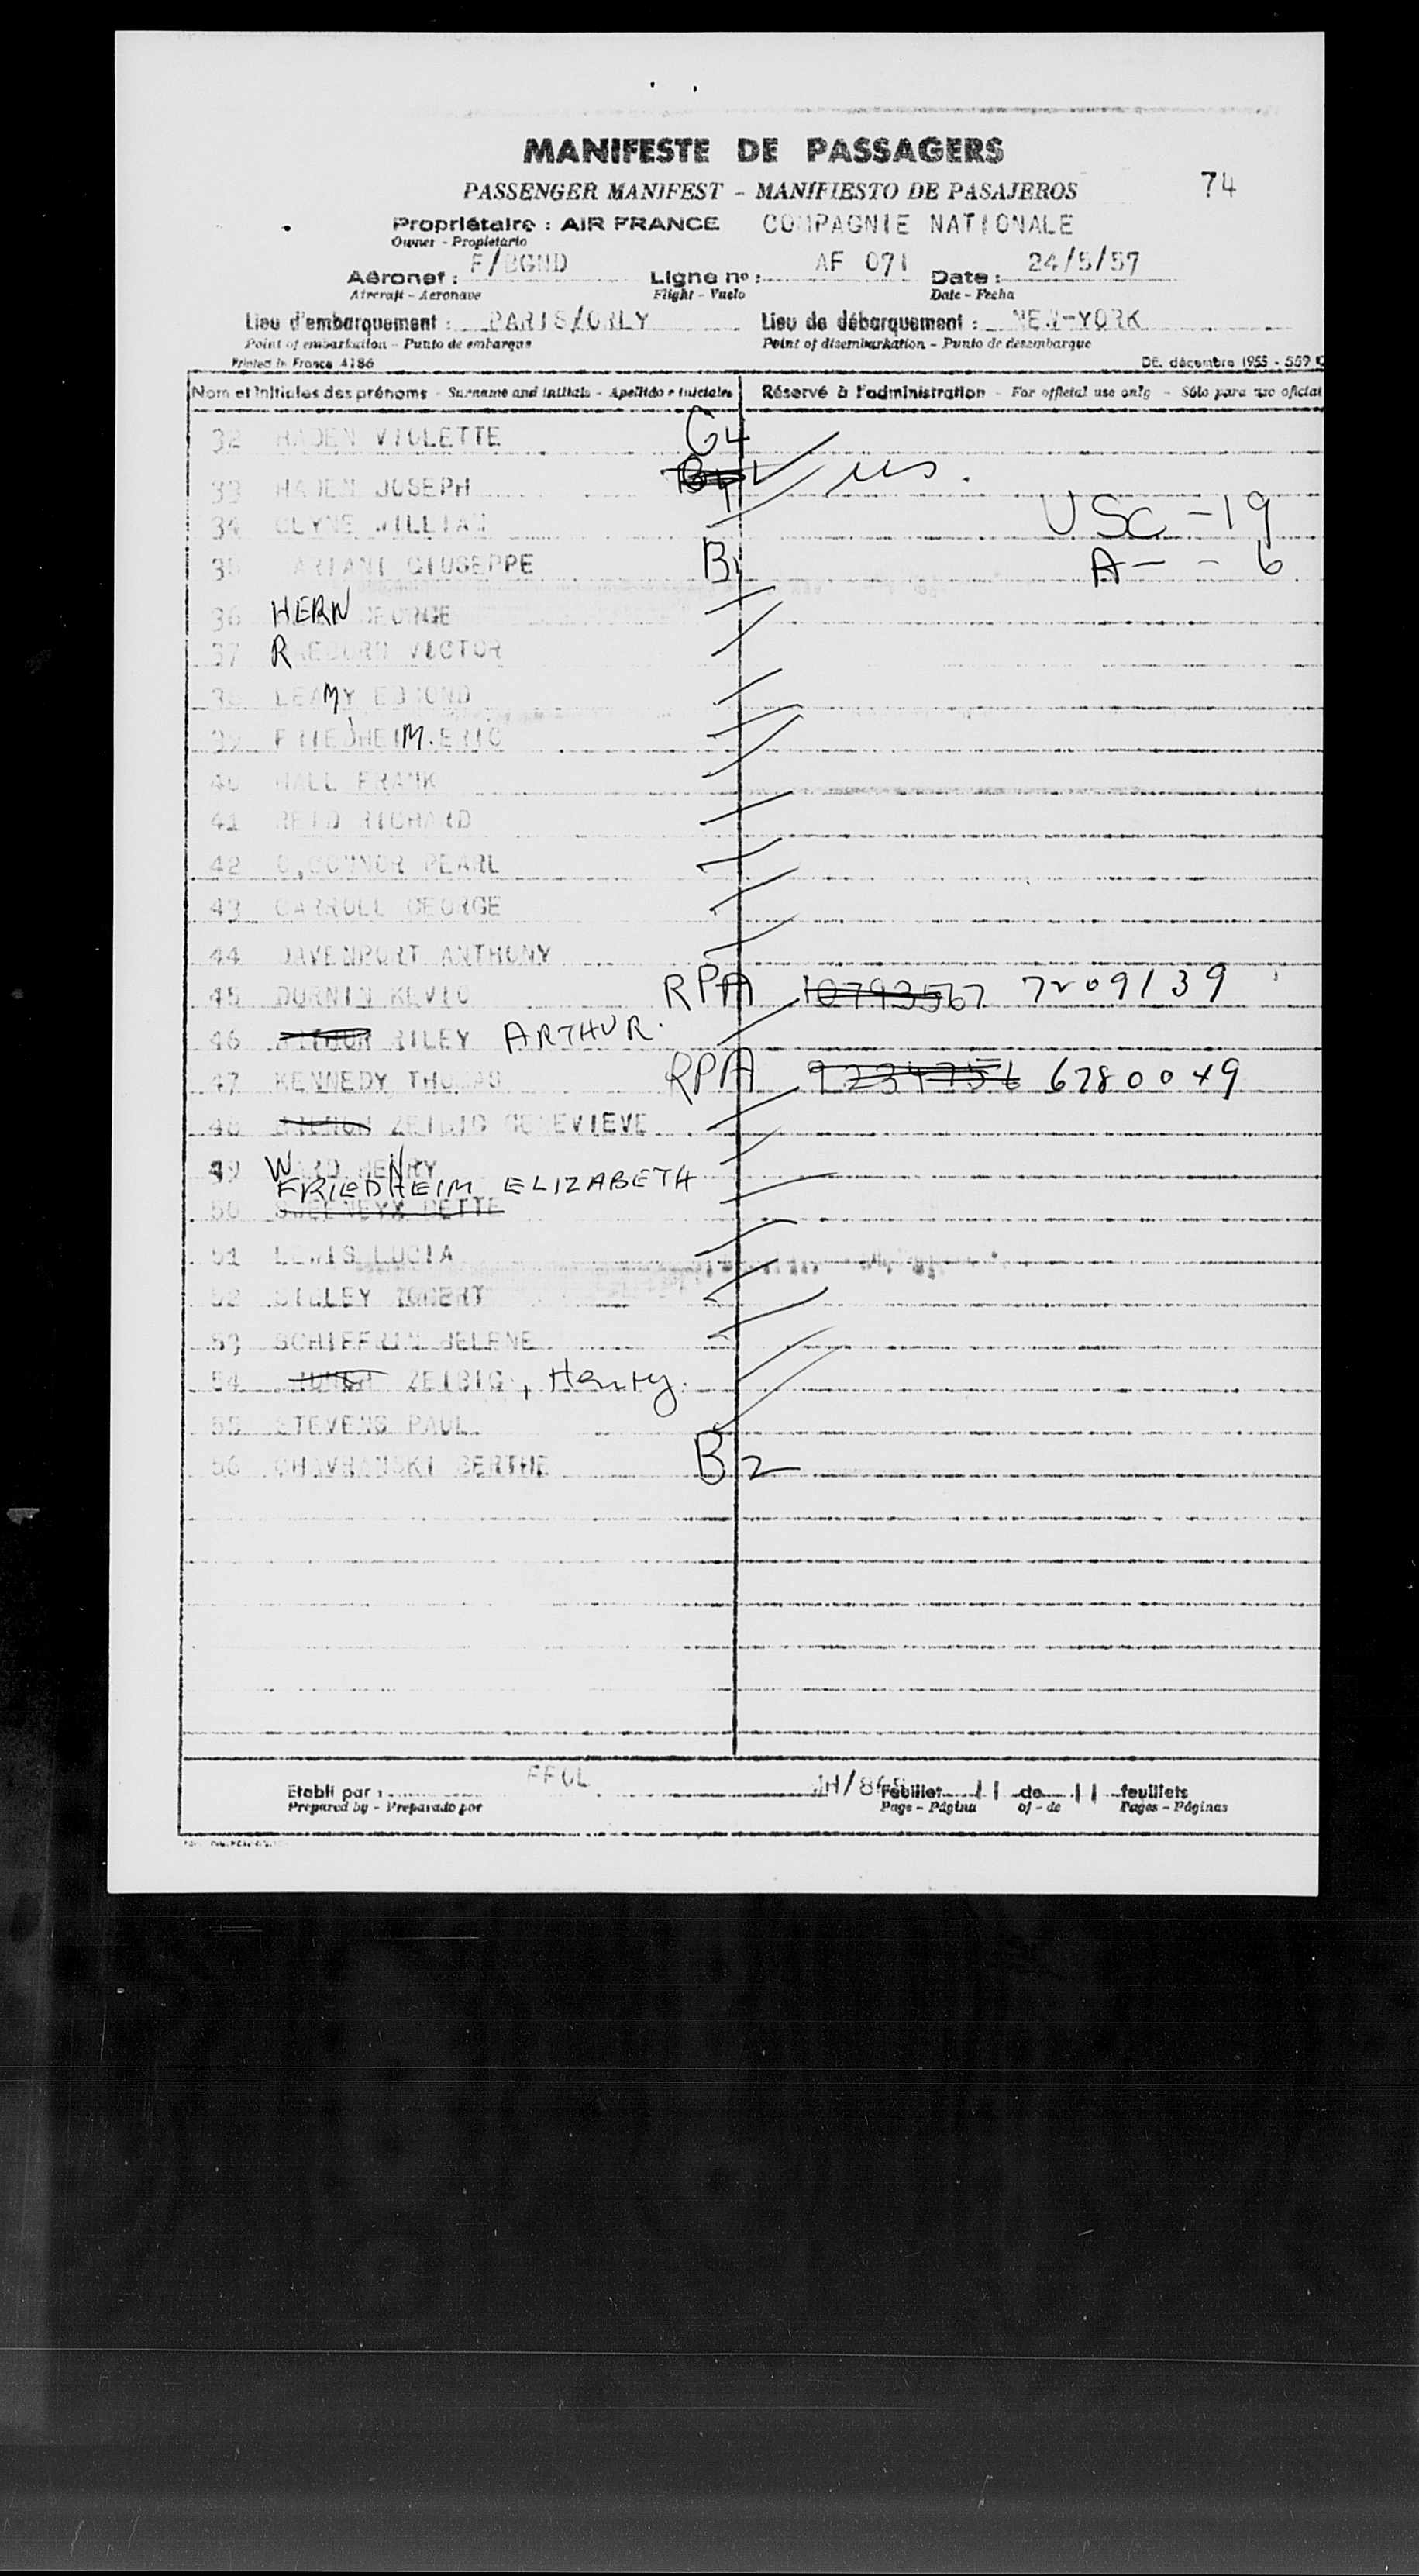 MANIFESTE DE PASSAGERS
PASSENGER MANIFEST - MANIFIESTO DE PASAJEROS
74
Propriétaire : AIR FRANCE COMPAGNIE NATIONALE
Owner - Propietario
Aéronef : F/BGND Ligne nº : AF 071 Date : 24/5/57
Aircraft - Aeronave Flight - Vuelo Date - Fecha
Lieu d'embarquement : PARIS/ORLY Lieu de débarquement : NEW-YORK
Point of embarkation - Punto de embarque Point of disembarkation - Punto de desembarque
Printed in France 4186 DE. décembre 1955 - 559
Nom et initiales des prénoms - Surname and initials - Apellido e iniciales Réservé à l'administration - For official use only - Sólo para uso oficial
32 HADEN VIOLETTE G4
33 HADEN JOSEPH us.
34 CLYNE WILLIAM USC - 19
35 GIUSEPPE B1 A - - 6
36 HERN GEORGE
37 RAEBURN VICTOR
38 LEAMY EDMOND
39 FRIEDHEIM ERIC
40 HALL FRANK
41 REID RICHARD
42 O,CONNOR PEARL
43 CARROLL GEORGE
44 DAVENPORT ANTHONY
45 DURNIN KEVIN RPA 10793567 7209139
46 ARTHUR RILEY ARTHUR.
47 KENNEDY THOMAS RPA 6780049
48 ZEIBIG GENEVIEVE
49 WARD HENRY
FRIEDHEIM ELIZABETH
50 SWEENEYX BETTE
51 LEWIS LUCIA
52 SIBLEY ROBERT
53 SCHIFFRIN HELENE
54 ZEIBIG, Henry.
55 STEVENS PAUL
56 BERTHE B2
Etabli par : Feuillet 11 de 11 feuillets
Prepared by - Preparado por Page - Página of - de Pages - Páginas